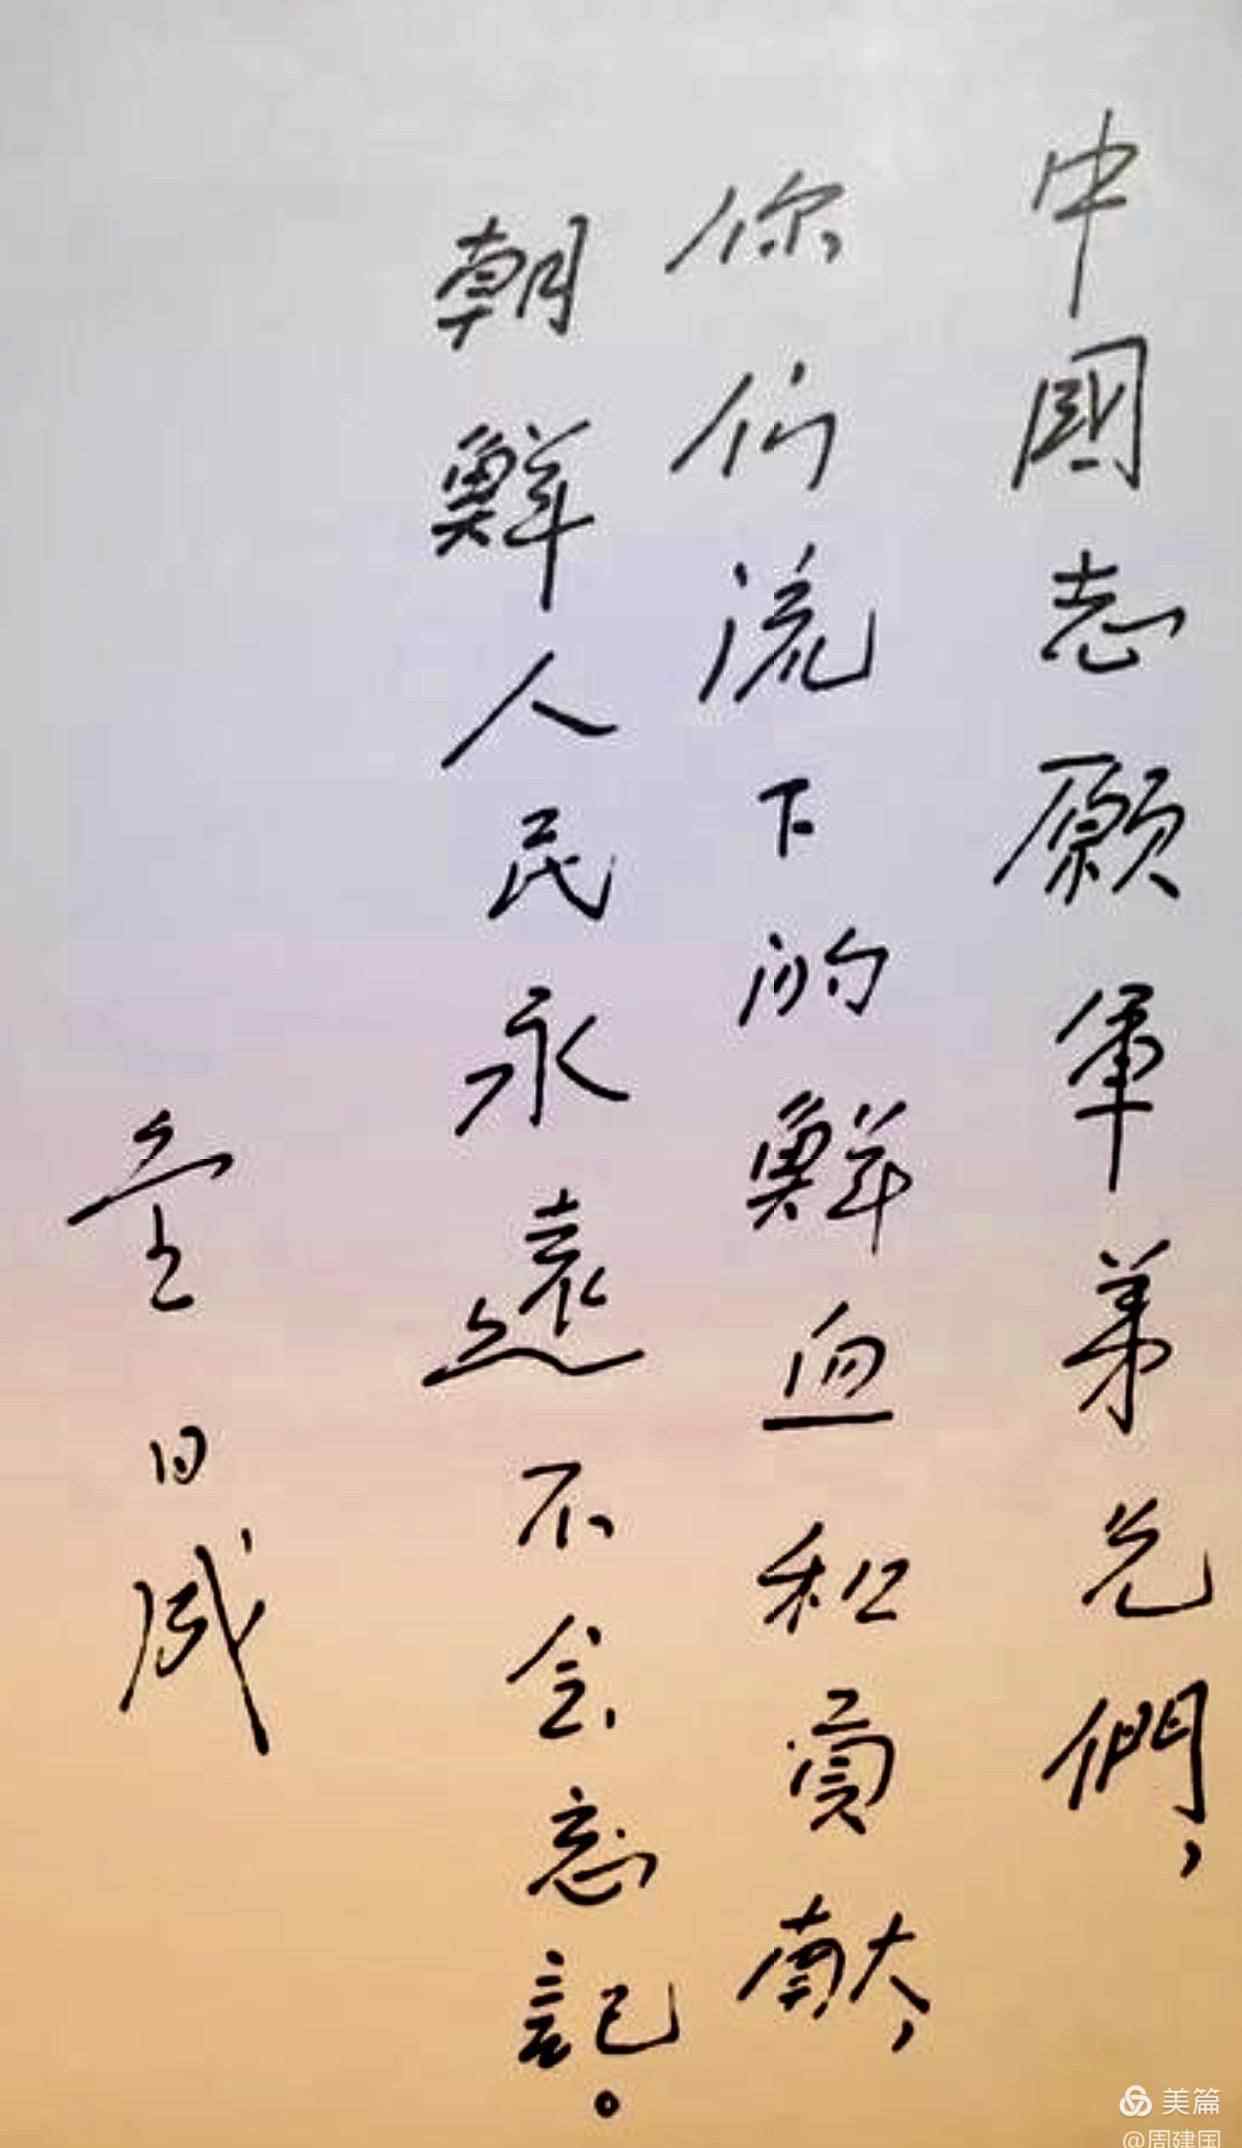 中國志願軍弟兄們，
你们流下的鮮血和貢献，
朝鮮人民永遠不会忘記。
金日成
美篇
@周建国